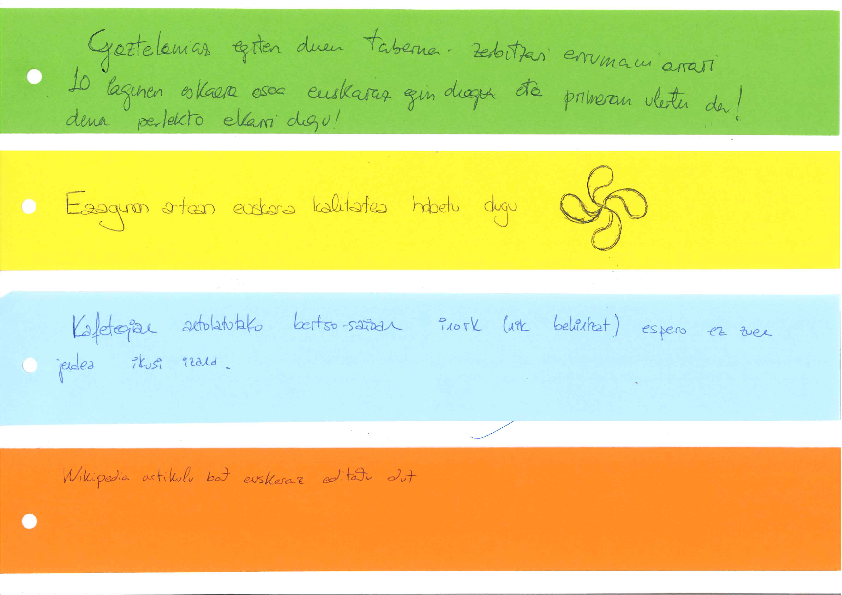 Gaztelamaz egiten duen taberna. zerbitzari errumaniarrari
10 lagunen eskaera osoa euskaraz egin diogu eta primeran ulertu du!
dena perfekto ekarri digu!
Ezagunon artean euskara kalitatea hobetu dugu
Kafetegian antolatutako bertso-saioan inork (nik behintzat) espero ez zuen
jendea ikusi izana.
Wikipedia artikulu bat euskeraz editatu dut